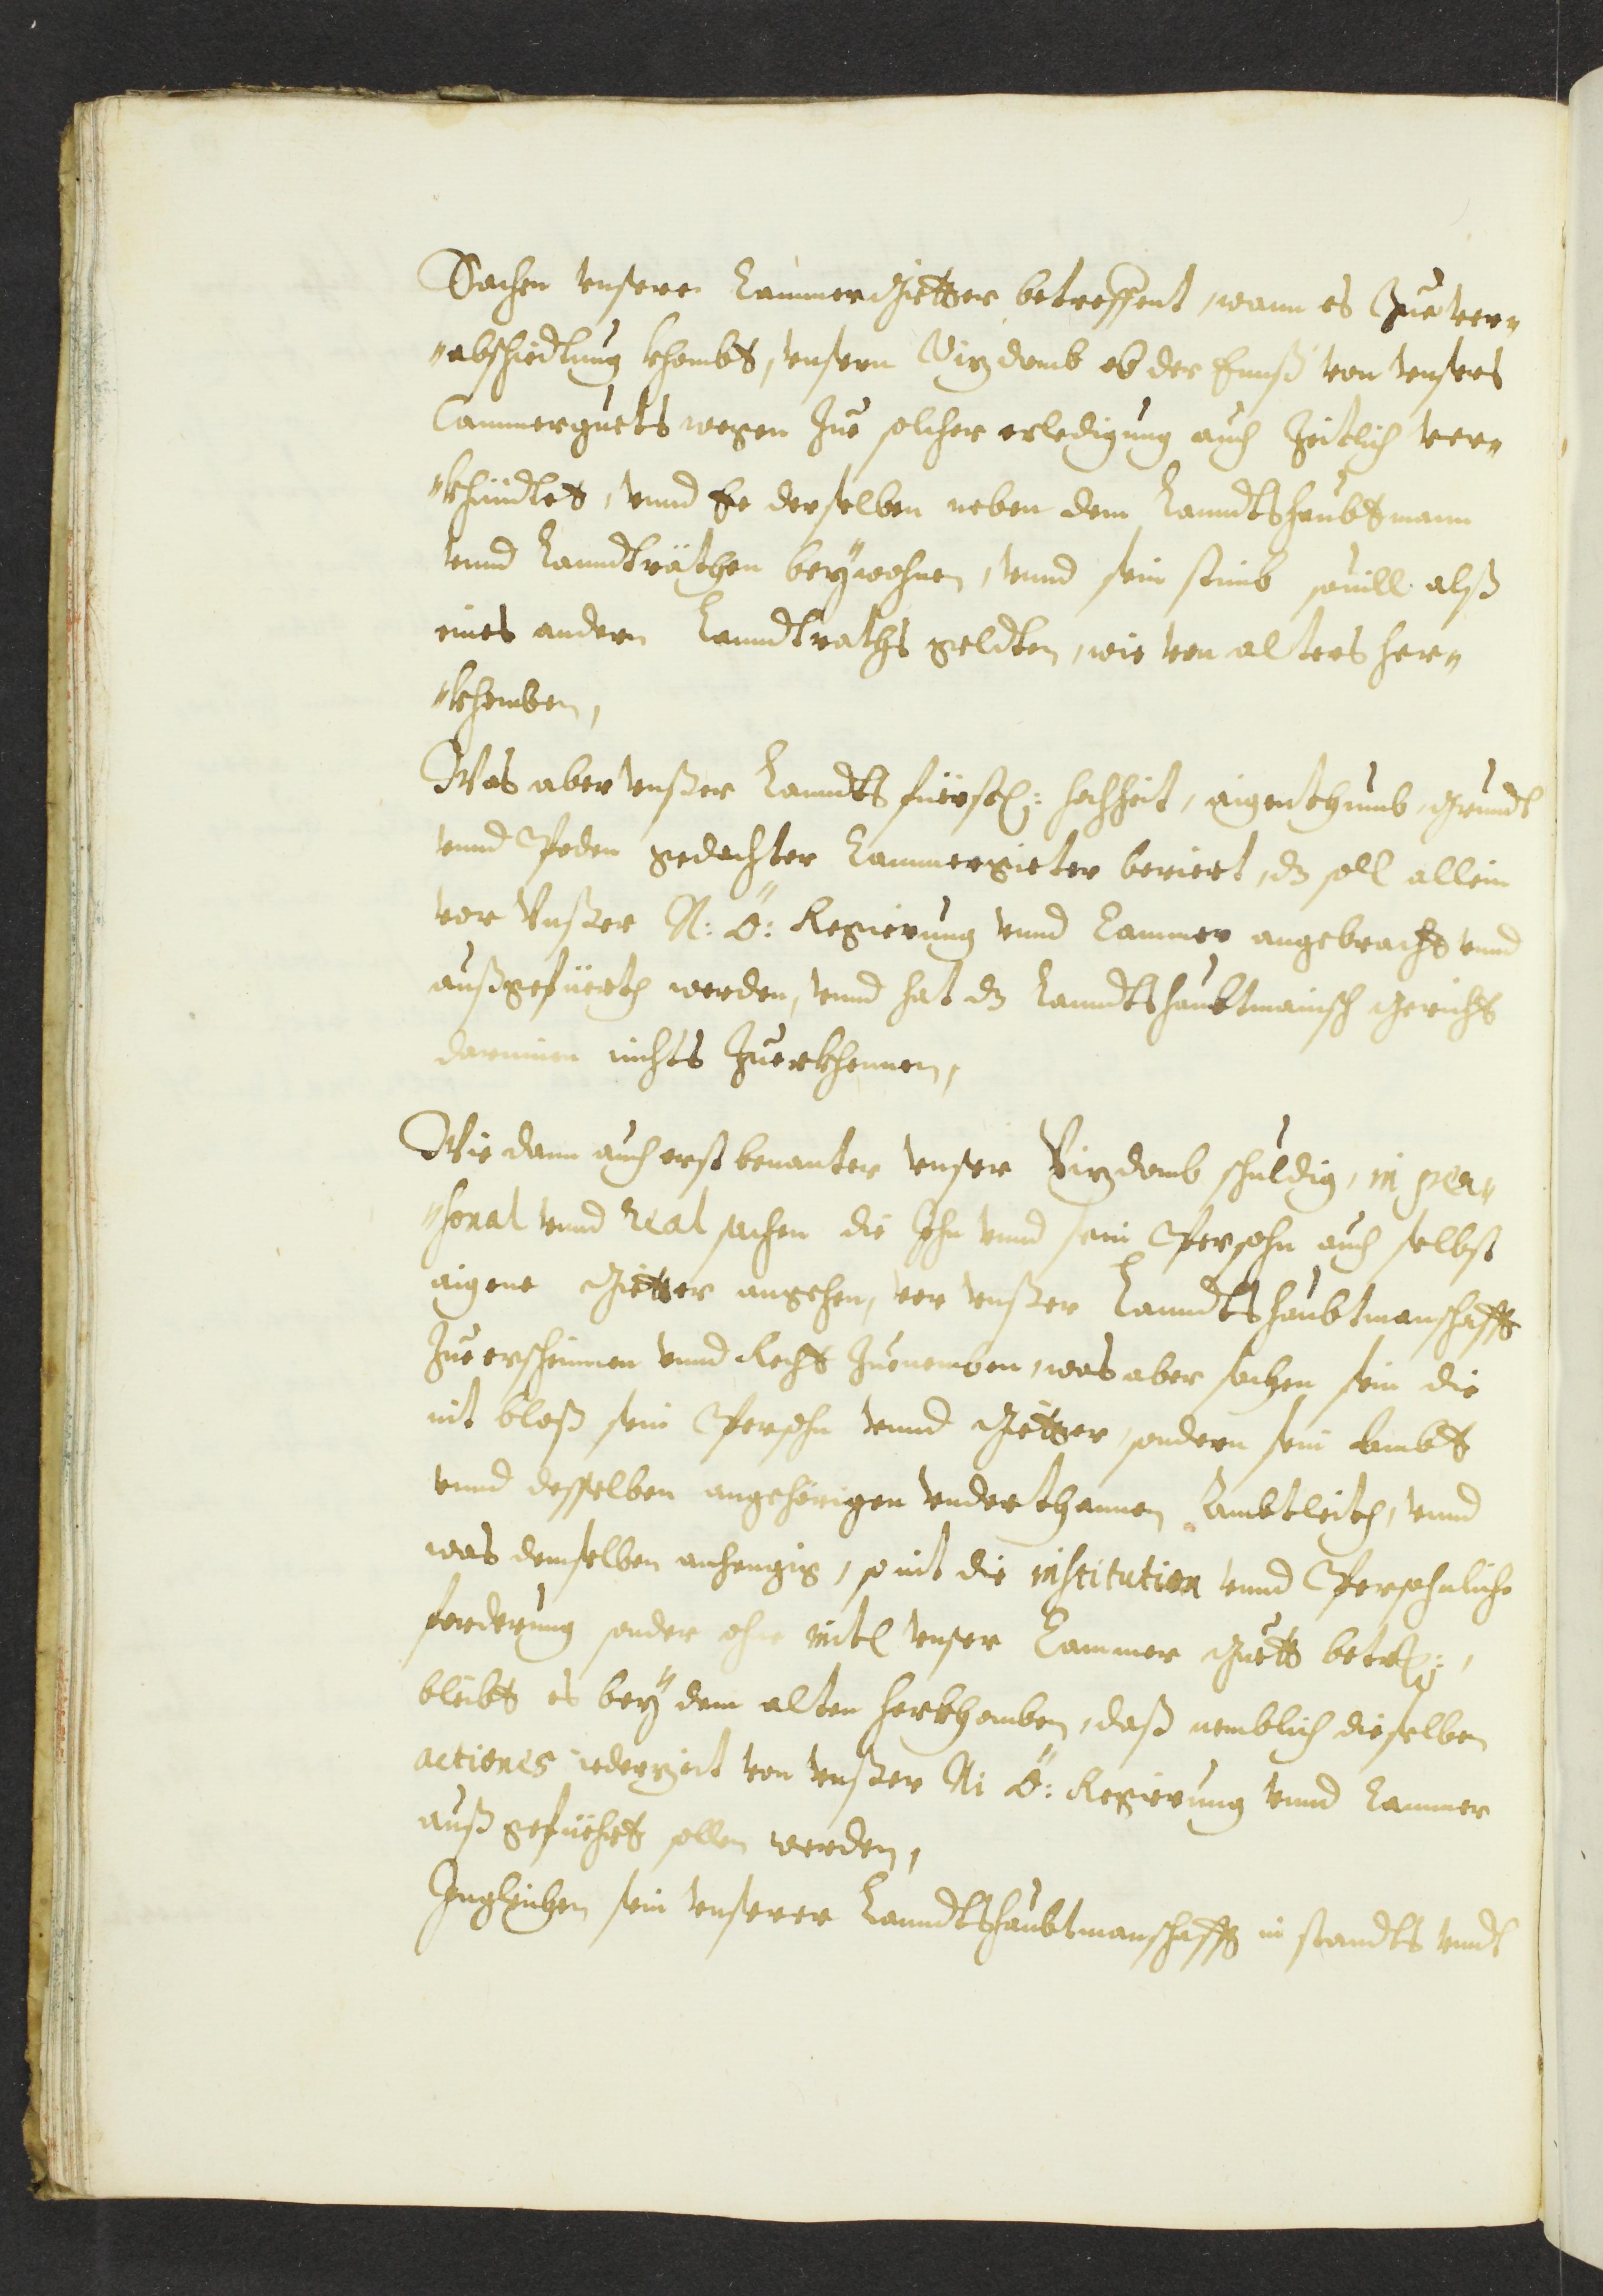 Sachen vnsere CammerGietter betreffent, wann es Zue ver„
„abschiedtung khombt, vnsern Vizdomb ob der Ennß von vnsers
Cammerguets wegen Zue solcher erledigung auch Zeitlich ver„
„khündtet, vnnd Er derselben neben dem Lanndtshaubtmann
vnnd Lanndträthen beÿwohnen, vnnd sein stimb souill alß
eines andern Lanndtraths geldten, wie von alters her„
„khomben,
Was aber vnßer Lanndts fürstl: hochheit, aigenthumb, Grundt
vnnd Poden gedachter Cammergieter beriert, dz soll allein
vor Vnßer N: Ö: Regierung vnnd Cammer angebracht vnnd
außgefüerth werden, vnnd hat dz Lanndtshaubtmanisch Gericht
darinnen nichts Zuerkhennen,
Wie dann auch erst benanter vnser Vizdomb schuldig, in per„
„sonal vnnd real sachen die Ihn vnnd sein Persohn auch selbst
aigene Gietter angehen, vor vnßer Lanndtshaubtmanschafft
Zue erscheinnen vnnd Recht Zuenemben, was aber sachen sein die
nit bloß sein Persohn vnnd Gietter, sondern sein Ambt
vnnd desselben angehörigen vnderthannen Ambtleith, vnnd
was demselben anhengig, so nit die institution vnnd Persohnliche
forderung sonder ohne mitl vnser Cammer Guett betr:,
bleibt es beÿ dem alten herkhomben, daß nemblich dieselben
actiones iederzeit von vnßer N: Ö: Regierung vnnd Cammer
auß gefüehrt sollen werden,
Ingleichen sein vnserer Lanndtshaubtmanschafft in standts vnndt